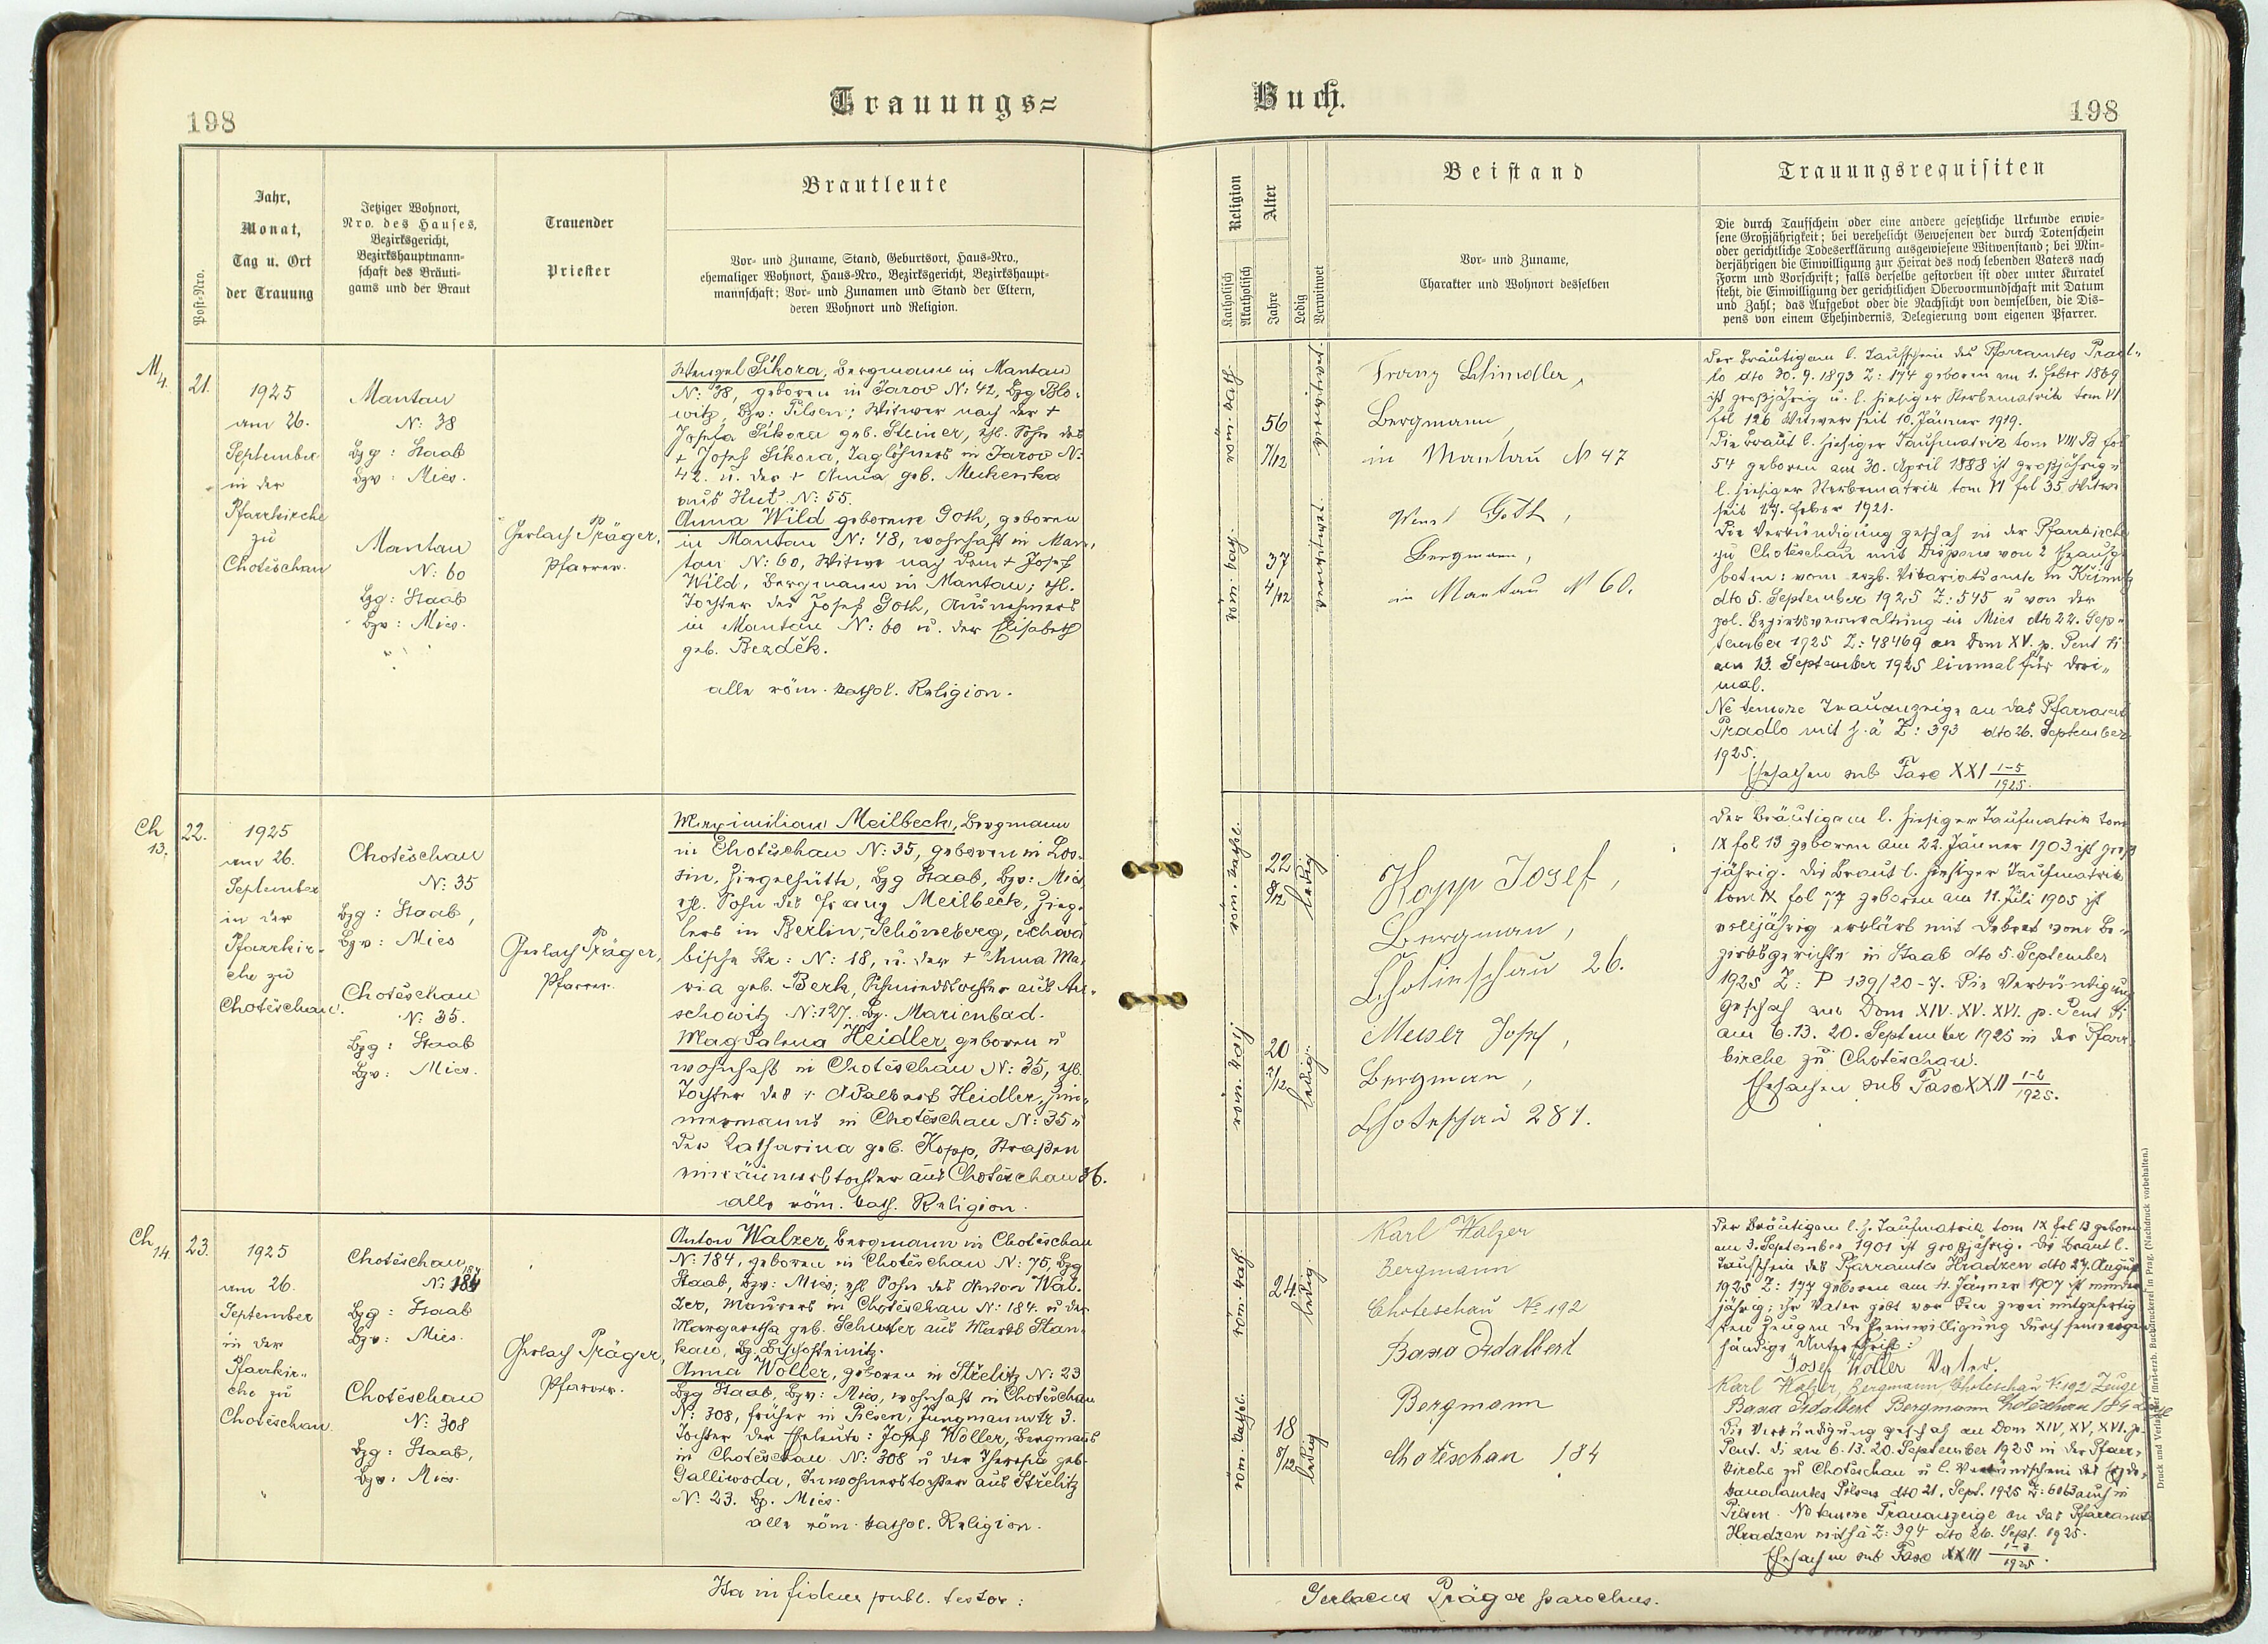 198
Trauungs=
Post-Nro.
Jahr,
Monat,
Tag u. Ort
der Trauung
Jetziger Wohnort,
Nro. des Hauses,
Bezirksgericht,
Bezirkshauptmann-
schaft des Bräuti-
gams und der Braut
Trauender
Priester
Brautleute
Vor- und Zuname, Stand, Geburtsort, Haus-Nro.,
ehemaliger Wohnort, Haus-Nro., Bezirksgericht, Bezirkshaupt-
mannschaft; Vor- und Zunamen und Stand der Eltern,
deren Wohnort und Religion.
M
4.
21.
1925
am 26.
September
in der
Pfarrkirche
zu
Choteschau
Mantau
N: 38
Bzg: Staab
Bzv: Mies.
Mantau
N: 60
Bzg: Staab
Bzv: Mies.
Gerlach Präger,
Pfarrer.
Wenzel Sikora, Bergmann in Mantau
N: 38, geboren in Jarov N: 42, Bzg Blo-
witz, Bzv: Pilsen; Witwer nach der +
Josefa Sikora geb. Steiner, ehl. Sohn des
+ Josef Sikora, Taglöhners in Jarov N:
42. u. der + Anna geb. Muckenka
aus Hut N: 55.
Anna Wild geborene Goth, geboren
in Mantau N: 48, wohnhaft in Man-
tau N: 60, Witwe nach dem + Josef
Wild, Bergmann in Mantau; ehl.
Tochter des Josef Goth, Ausnehmers
in Mantau N: 60 u. der Elisabeth
geb. Bezděk.
alle röm. kathol. Religion.
Ch
13.
22.
1925
am 26.
September
in der
Pfarrkir-
che zu
Choteschau.
Choteschau
N: 35
Bzg: Staab,
Bzv: Mies
Choteschau
N: 35.
Bzg: Staab
Bzv: Mies.
Gerlach Präger,
Pfarrer.
Maximilian Meilbeck, Bergmann
in Choteschau N: 35, geboren in Los-
sin, Ziegelhütte, Bzg Staab, Bzv: Mies,
ehl. Sohn des Franz Meilbeck, Zieg-
lers in Berlin-Schöneberg, Schwä
bische Str: N: 18, u. der + Anna Ma-
ria geb. Berk, Schmiedstochter aus Au-
schowitz N: 127. Bz. Marienbad.
Magdalena Heidler, geboren u
wohnhaft in Choteschau N: 35, ehl.
Tochter des + Adalbert Heidler, Zim-
mermanns in Choteschau N: 35 u
der Katharina geb. Kopp, Straßen
einräumerstochter aus Choteschau 36.
alle röm. kath. Religion.
Ch
14.
23.
1925
am 26.
September
in der
Pfarrkir-
che zu
Choteschau.
Choteschau
N: 184
Bzg: Staab
Bzv: Mies.
Choteschau
N: 308
Bzg: Staab,
Bzv: Mies.
Gerlach Präger,
Pfarrer.
Anton Walzer, Bergmann in Choteschau
N: 184, geboren in Choteschau N: 75, Bzg
Staab, Bzv: Mies; ehl Sohn des Anton Wal-
zer, Maurers in Choteschau N: 184. u der
Margaretha geb. Schuster aus Markt Stan-
kau, Bz. Bischofteinitz.
Anna Woller, geboren in Střelitz N: 23
Bzg Staab, Bzv: Mies, wohnhaft in Choteschau
N: 308, früher in Pilsen, Jungmannstr 3.
Tochter der Eheleute: Josef Woller, Bergmanns
in Choteschau N: 308 u der Theresia geb.
Galliwoda, Inwohnerstochter aus Střelitz
N: 23. Bz. Mies.
alle röm. kathol. Religion.
Ita in fidem publ. testor:
Buch.
198
Religion
Katholisch
Akatholisch
Alter
Jahre
Ledig
Verwitwet
Beistand
Vor- und Zuname,
Charakter und Wohnort desselben
Trauungsrequisiten
Die durch Taufschein oder eine andere gesetzliche Urkunde erwie-
sene Großjährigkeit; bei verehelicht Gewesenen der durch Totenschein
oder gerichtliche Todeserklärung ausgewiesene Witwenstand; bei Min-
derjährigen die Einwilligung zur Heirat des noch lebenden Vaters nach
Form und Vorschrift; falls derselbe gestorben ist oder unter Kuratel
steht, die Einwilligung der gerichtlichen Obervormundschaft mit Datum
und Zahl; das Aufgebot oder die Nachsicht von demselben, die Dis-
pens von einem Ehehindernis, Delegierung vom eigenen Pfarrer.
röm. kath.
56
7/12
verwitwet.
röm. kath.
37
4/12
verwitwet
Franz Schindler,
Bergmann,
in Mantau N 47
Wenzl Goth,
Bergmann,
in Mantau N 60.
Der Bräutigam l. Taufschein des Pfarramtes Prad-
lo dto 30. 9. 1893 Z: 174 geboren am 1. Feber 1869
ist großjährig u. l. hiesiger Sterbematrik tom VI
fol 126 Witwer seit 10. Jänner 1919.
Die Braut l. hiesiger Taufmatrik tom VIII B fol
54 geboren am 30. April 1888 ist großjährig u
l. hiesiger Sterbematrik tom VI fol 35 Witwe
seit 17. Feber 1921.
Die Verkündigung geschah in der Pfarrkirche
zu Choteschau mit Dispens von 2 Heraufge
boten: vom erzb. Vikariatsamte in Krimitz
dto 5. September 1925 Z: 545 u von der
pol. Bezirksverwaltung in Mies dto 22. Sep-
tember 1925 Z: 48469 an Dom XV. p. Pent di
am 13. September 1925 einmal für drei-
mal.
Ne temere Trauanzeige an das Pfarramt
Pradlo mit h. ä Z: 393 dto 26. September
1925.
Ehesachen sub Fasc XXI 1-5/1925.
röm. kathl.
22
8/12
ledig
röm. kath.
20
2/12
ledig.
Kopp Josef,
Bergman,
Chotieschau 26.
Meser Josef,
Bergman,
Choteschau 281.
Der Bräutigam l. hiesiger Taufmatrik tom
IX fol 19 geboren am 22. Jänner 1903 ist groß
jährig. Die Braut l. hiesiger Taufmatrik
tom IX fol 77 geboren am 11. Juli 1905 ist
volljährig erklärt mit Dekret vom Be-
zirksgerichte in Staab dto 5. September
1925 Z: P 139/20-7. Die Verkündigung
geschah am Dom XIV. XV. XVI. p. Pent di
am 6. 13. 20. September 1925 in der Pfarr-
kirche zu Choteschau.
Ehesachen sub Fasc XXII 1-6/1925.
röm. kath.
24.
ledig.
röm. kathol.
18
8/12
ledig
Karl Walzer
Bergmann
Choteschau No 192
Baxa Adalbert
Bergmann
Choteschau 184
Der Bräutigam l. h. Taufmatrik tom IX fol 13 geboren
am 3. September 1901 ist großjährig. Die Braut l.
Taufschein des Pfarramts Hradzen dto 27. August
1925 Z: 177 geboren am 4. Jänner 1907 ist minder
jährig; ihr Vater gibt vor den zwei mitgefertig
ten Zeugen die Einwilligung durch seine eigen
händige Unterschrift:
Josef Woller Vater.
Karl Walzer, Bergmann, Choteschau N. 192 Zeuge
Baxa Adalbert Bergmann Choteschau 184 Zeuge
Die Verkündigung geschah an Dom XIV, XV, XVI. p.
Pent. di am 6. 13. 20. September 1925 in der Pfarr-
kirche zu Choteschau u l. Verkündschein des Erzde-
kanalamtes Pilsen dto 21. Sept. 1925 Z: 6063 auch in
Pilsen. Ne temere Trauanzeige an das Pfarramt
Hradzen mit h ä Z: 394 dto 26. Sept. 1925.
Ehesachen sub Fasc XXIII 1-7/1925.
Druck und Verlag der fürst-erzb. Buchdruckerei in Prag. (Nachdruck vorbehalten.)
Gerlacus Präger parochus.